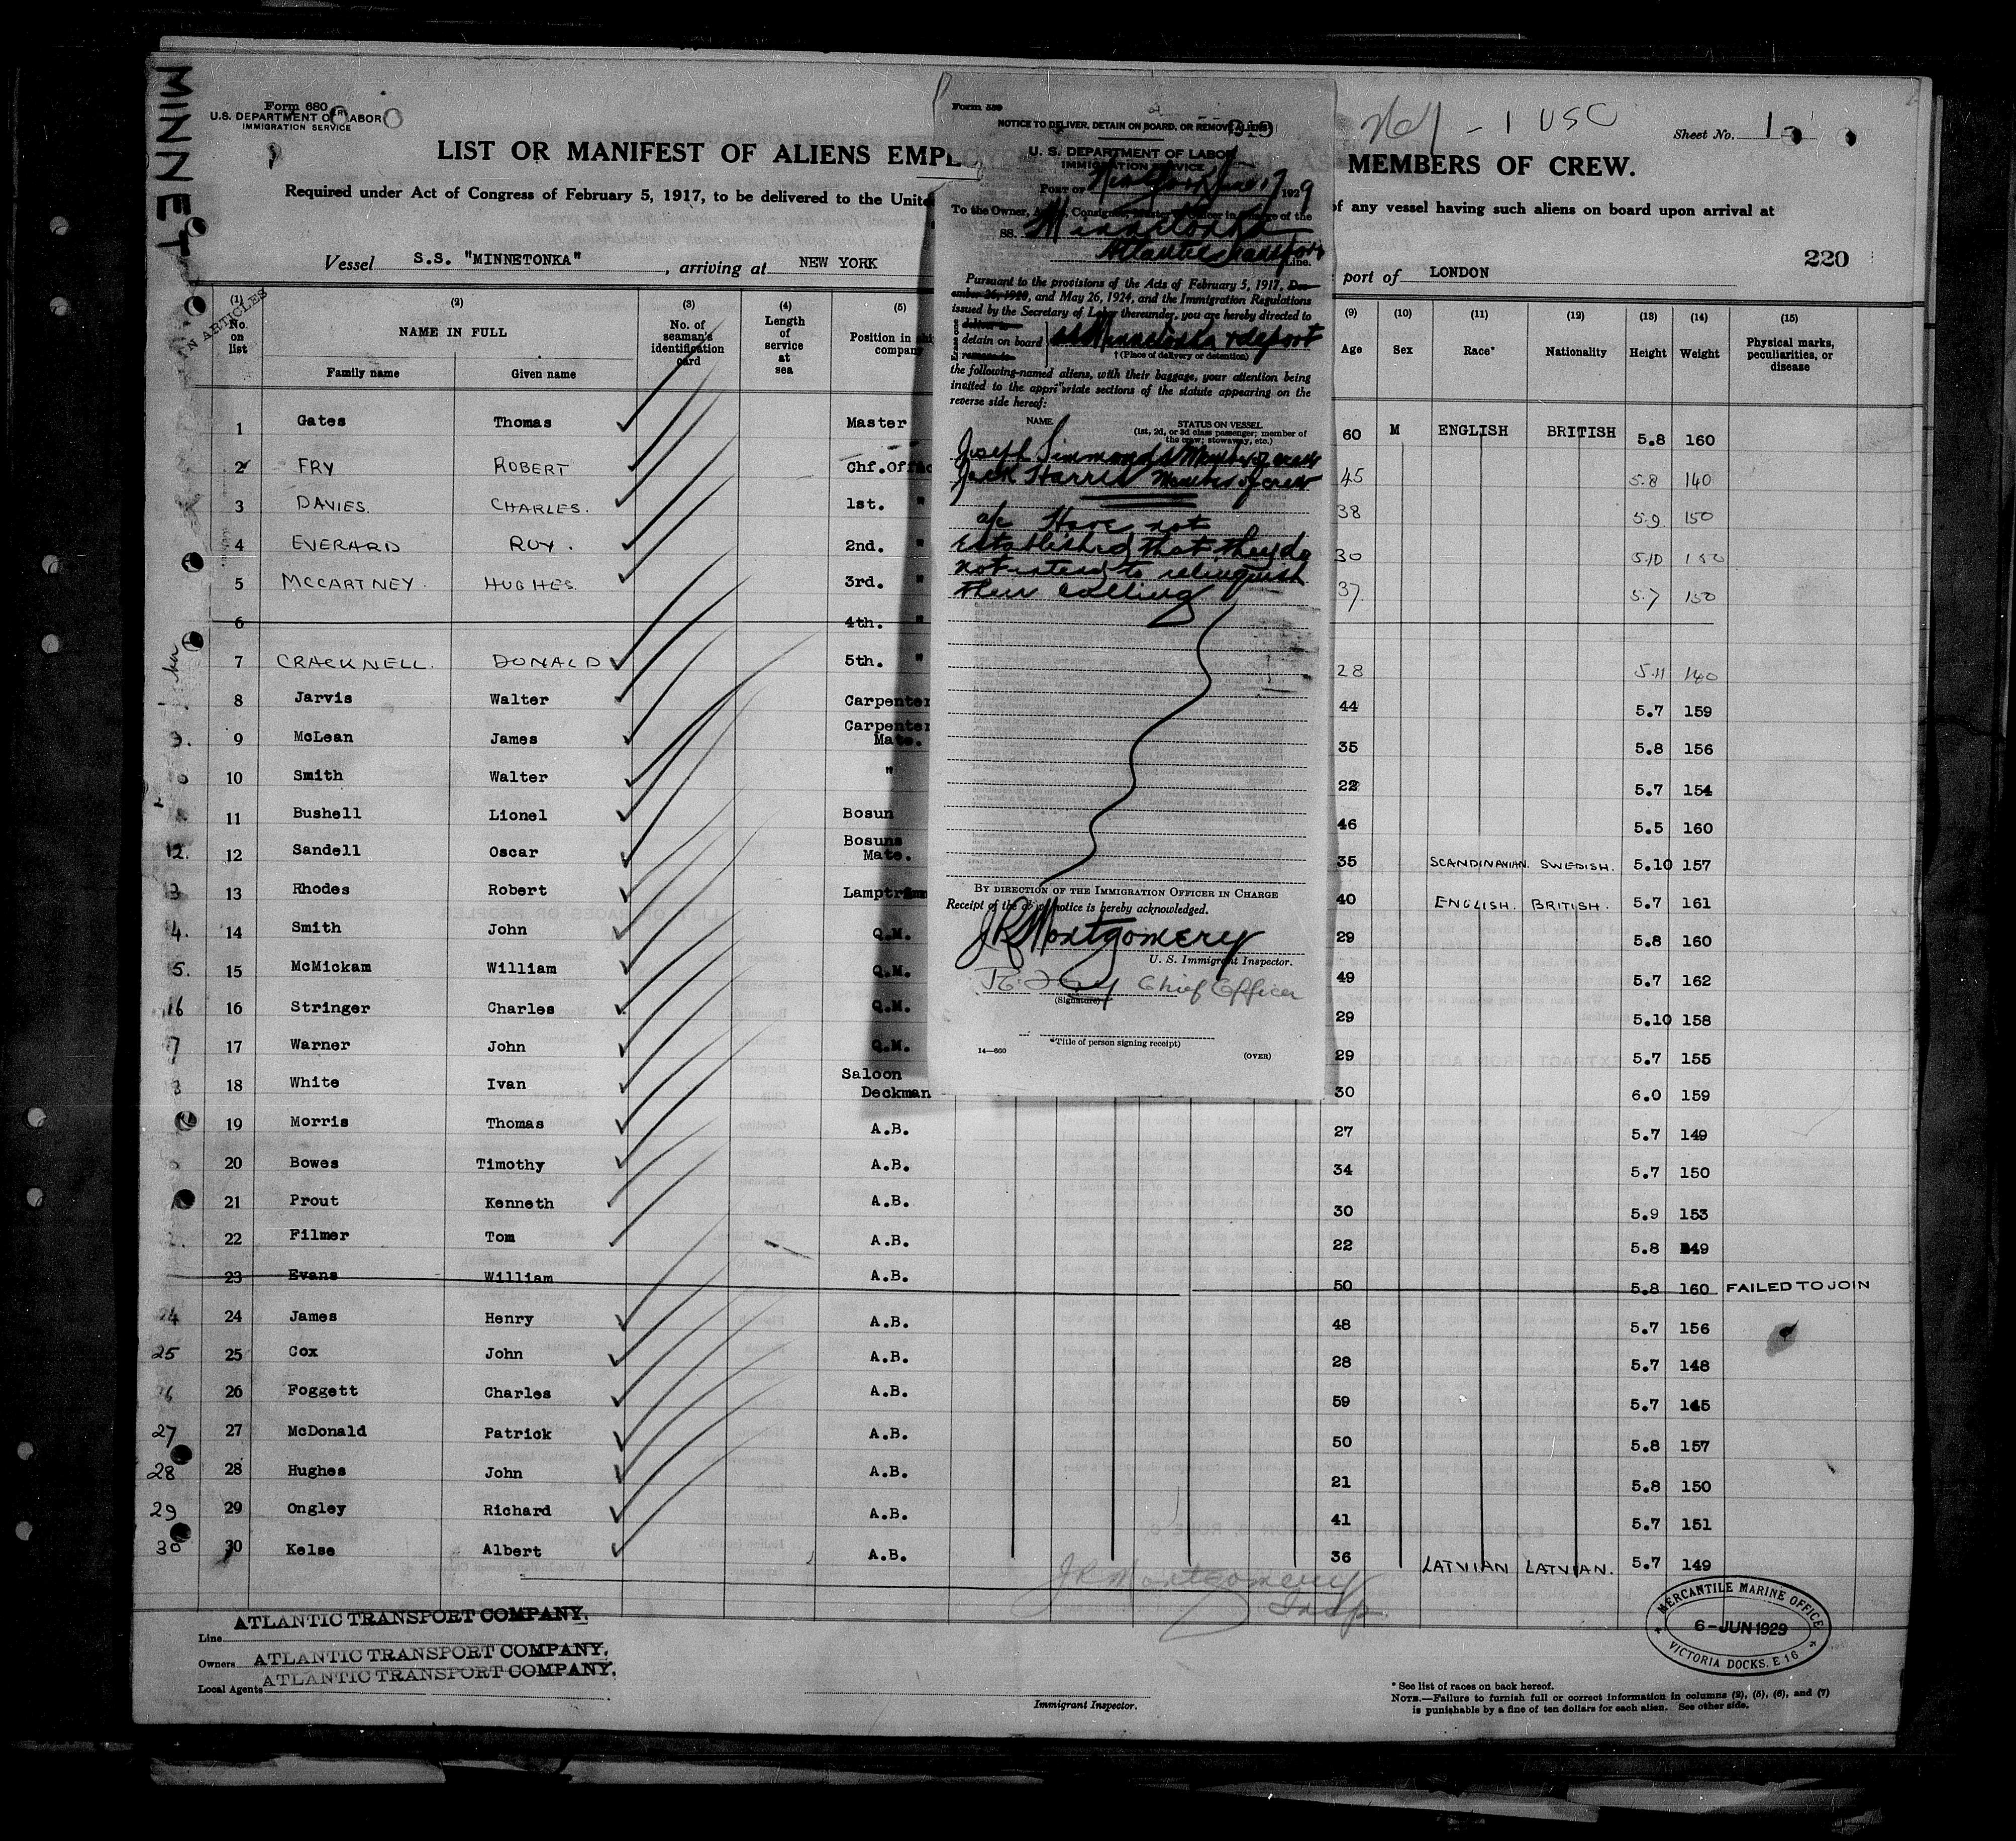 MINNET
Form 680
U.S. DEPARTMENT OF LABOR
IMMIGRATION SERVICE
LIST OR MANIFEST OF ALIENS EMPL
MEMBERS OF CREW.
- 1 USC
Sheet No. 1
Required under Act of Congress of February 5, 1917, to be delivered to the Unite
of any vessel having such aliens on board upon arrival at
220
Vessel S.S. "MINNETONKA", arriving at NEW YORK
port of LONDON
N ARTICLES
(1) No. on list
(2) NAME IN FULL
Family name Given name
(3) No. of seaman's identification card
(4) Length of service at sea
(5) Position in ship's company
(9) Age
(10) Sex
(11) Race*
(12) Nationality
(13) Height
(14) Weight
(15) Physical marks, peculiarities, or disease
1 Gates Thomas Master 60 M ENGLISH BRITISH 5.8 160
2 FRY ROBERT Chf.Off 45 5.8 140
3 DAVIES. CHARLES. 1st. " 38 5.9 150
4 EVERARD ROY. 2nd. " 30 5.10 150
5 MCCARTNEY. HUGHES. 3rd. " 37. 5.7 150
6 4th. "
7 CRACKNELL. DONALD 5th. " 28 5.11 140
8 Jarvis Walter Carpenter 44 5.7 159
9 McLean James Carpenter Mate. 35 5.8 156
10 Smith Walter " 22 5.7 154
11 Bushell Lionel Bosun 46 5.5 160
12. 12 Sandell Oscar Bosuns Mate. 35 SCANDINAVIAN. SWEDISH. 5.10 157
13 Rhodes Robert Lamptrimm 40 ENGLISH. BRITISH. 5.7 161
14 Smith John Q.M. 29 5.8 160
15 McMickam William Q.M. 49 5.7 162
16 16 Stringer Charles Q.M. 29 5.10 158
17 Warner John Q.M. 29 5.7 155
18 White Ivan Saloon Deckman 30 6.0 159
19 Morris Thomas A.B. 27 5.7 149
20 Bowes Timothy A.B. 34 5.7 150
21 Prout Kenneth A.B. 30 5.9 153
22 Filmer Tom A.B. 22 5.8 149
23 Evans William A.B. 50 5.8 160 FAILED TO JOIN
24 24 James Henry A.B. 48 5.7 156
25 25 Cox John A.B. 28 5.7 148
26 Foggett Charles A.B. 59 5.7 145
27 27 McDonald Patrick A.B. 50 5.8 157
28 28 Hughes John A.B. 21 5.8 150
29 29 Ongley Richard A.B. 41 5.7 151
30 30 Kelse Albert A.B. 36 LATVIAN LATVIAN. 5.7 149
Form 589
NOTICE TO DELIVER, DETAIN ON BOARD, OR REMOVE ALIENS
U. S. DEPARTMENT OF LABOR
IMMIGRATION SERVICE
PORT OF New York June 17 1929
To the Owner, Agent, Consignee, Master or Officer in Charge of the
SS. Minnetonka
Atlantic Transport Line.
Pursuant to the provisions of the Acts of February 5, 1917, Dec-
ember 26, 1920, and May 26, 1924, and the Immigration Regulations
issued by the Secretary of Labor thereunder, you are hereby directed to
Erase one
deliver to
detain on board
remove to
SS Minnetonka & deport
† (Place of delivery or detention)
the following-named aliens, with their baggage, your attention being
invited to the appropriate sections of the statute appearing on the
reverse side hereof:
NAME STATUS ON VESSEL
(1st, 2d, or 3d class passenger; member of
the crew; stowaway, etc.)
Joseph Simmonds Member of crew
Jack Harris Member of crew
a/c Have not
established that they do
not intend to relinquish
their calling
BY DIRECTION OF THE IMMIGRATION OFFICER IN CHARGE
Receipt of the above notice is hereby acknowledged.
J R Montgomery
U. S. Immigrant Inspector.
R. Fry Chief Officer
(Signature)
*Title of person signing receipt)
14—600 (OVER)
J R Montgomery
Insp.
Line ATLANTIC TRANSPORT COMPANY.
Owners ATLANTIC TRANSPORT COMPANY.
Local Agents ATLANTIC TRANSPORT COMPANY.
Immigrant Inspector.
MERCANTILE MARINE OFFICE
6-JUN 1929
VICTORIA DOCKS. E 16
* See list of races on back hereof.
NOTE.—Failure to furnish full or correct information in columns (2), (5), (6), and (7)
is punishable by a fine of ten dollars for each alien. See other side.